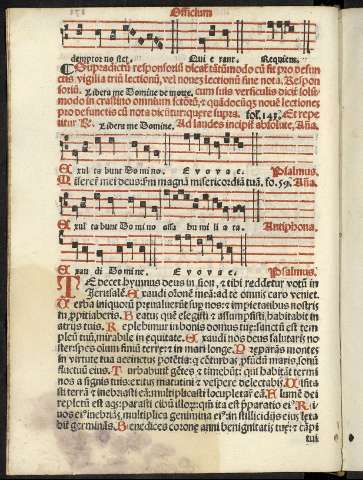 Officium
demptor no ster. Qui e rant. Requiem.
Supradictũ responsoriũ dicat̃ tãtũmodo cũ fit pro defun
ctis vigilia triũ lectionũ, vel nouẽ lectionũ sine nota. Respon
soriũ. Libera me Domine de morte. cum suis versiculis dicit̃ solũ
modo in crastino omnium sctorũ, ⁊ quãdocũq; nouẽ lectiones
pro defunctis cũ nota dicũtur: vt quere supra. fol. 143. Et repe
titur ℟. Libera me Domine. Ad laudes incipit̃ absolute, Aña.
Exul ta bunt Do mi no. E v o v a e. Psalmus.
Miserere mei deus: scđm magnã misericordiã tuã. fo. 59. Aña.
Exul ta bunt Do mi no ossa hu mi li a ta. Antiphona.
Exau di Do mi ne. E v o v a e. Psalmus.
Te decet hymnus deus in sion, ⁊ tibi reddetur votũ in
Jerusalẽ. Exaudi orationẽ meã: ad te omnis caro veniet.
Verba iniquorũ preualuerũt sup nos: ⁊ impietatibus nostris
tu ppitiaberis. Beatus quẽ elegisti ⁊ assumpsisti, habitabit in
atrijs tuis. Replebimur in bonis domus tue: sanctũ est tem
plũ tuũ, mirabile in equitate. Exaudi nos deus salutaris no
ster: spes oium finiũ terre: ⁊ in mari longe. Preparãs montes
in virtute tua accinctus potẽtia: q̃ cõturbas pfũdũ maris, sonũ
fluctuũ eius. Turbabunt̃ gẽtes ⁊ timebũt: qui habitãt termi
nos a signis tuis: exitus matutini ⁊ vespere delectabis. Uisita
sti terrã ⁊ inebriasti eã: multiplicasti locupletare eã. Flumẽ dei
repletũ est aq̃s: parasti cibũ illorũ: qm̃ ita est pparatio ei⁹. Ri
uos ei⁹ inebriãs, multiplica genimina ei⁹: in stillicidijs eius leta
bit̃ germinãs. Benedices corone anni benignitatis tue: ⁊ cãpi
tui